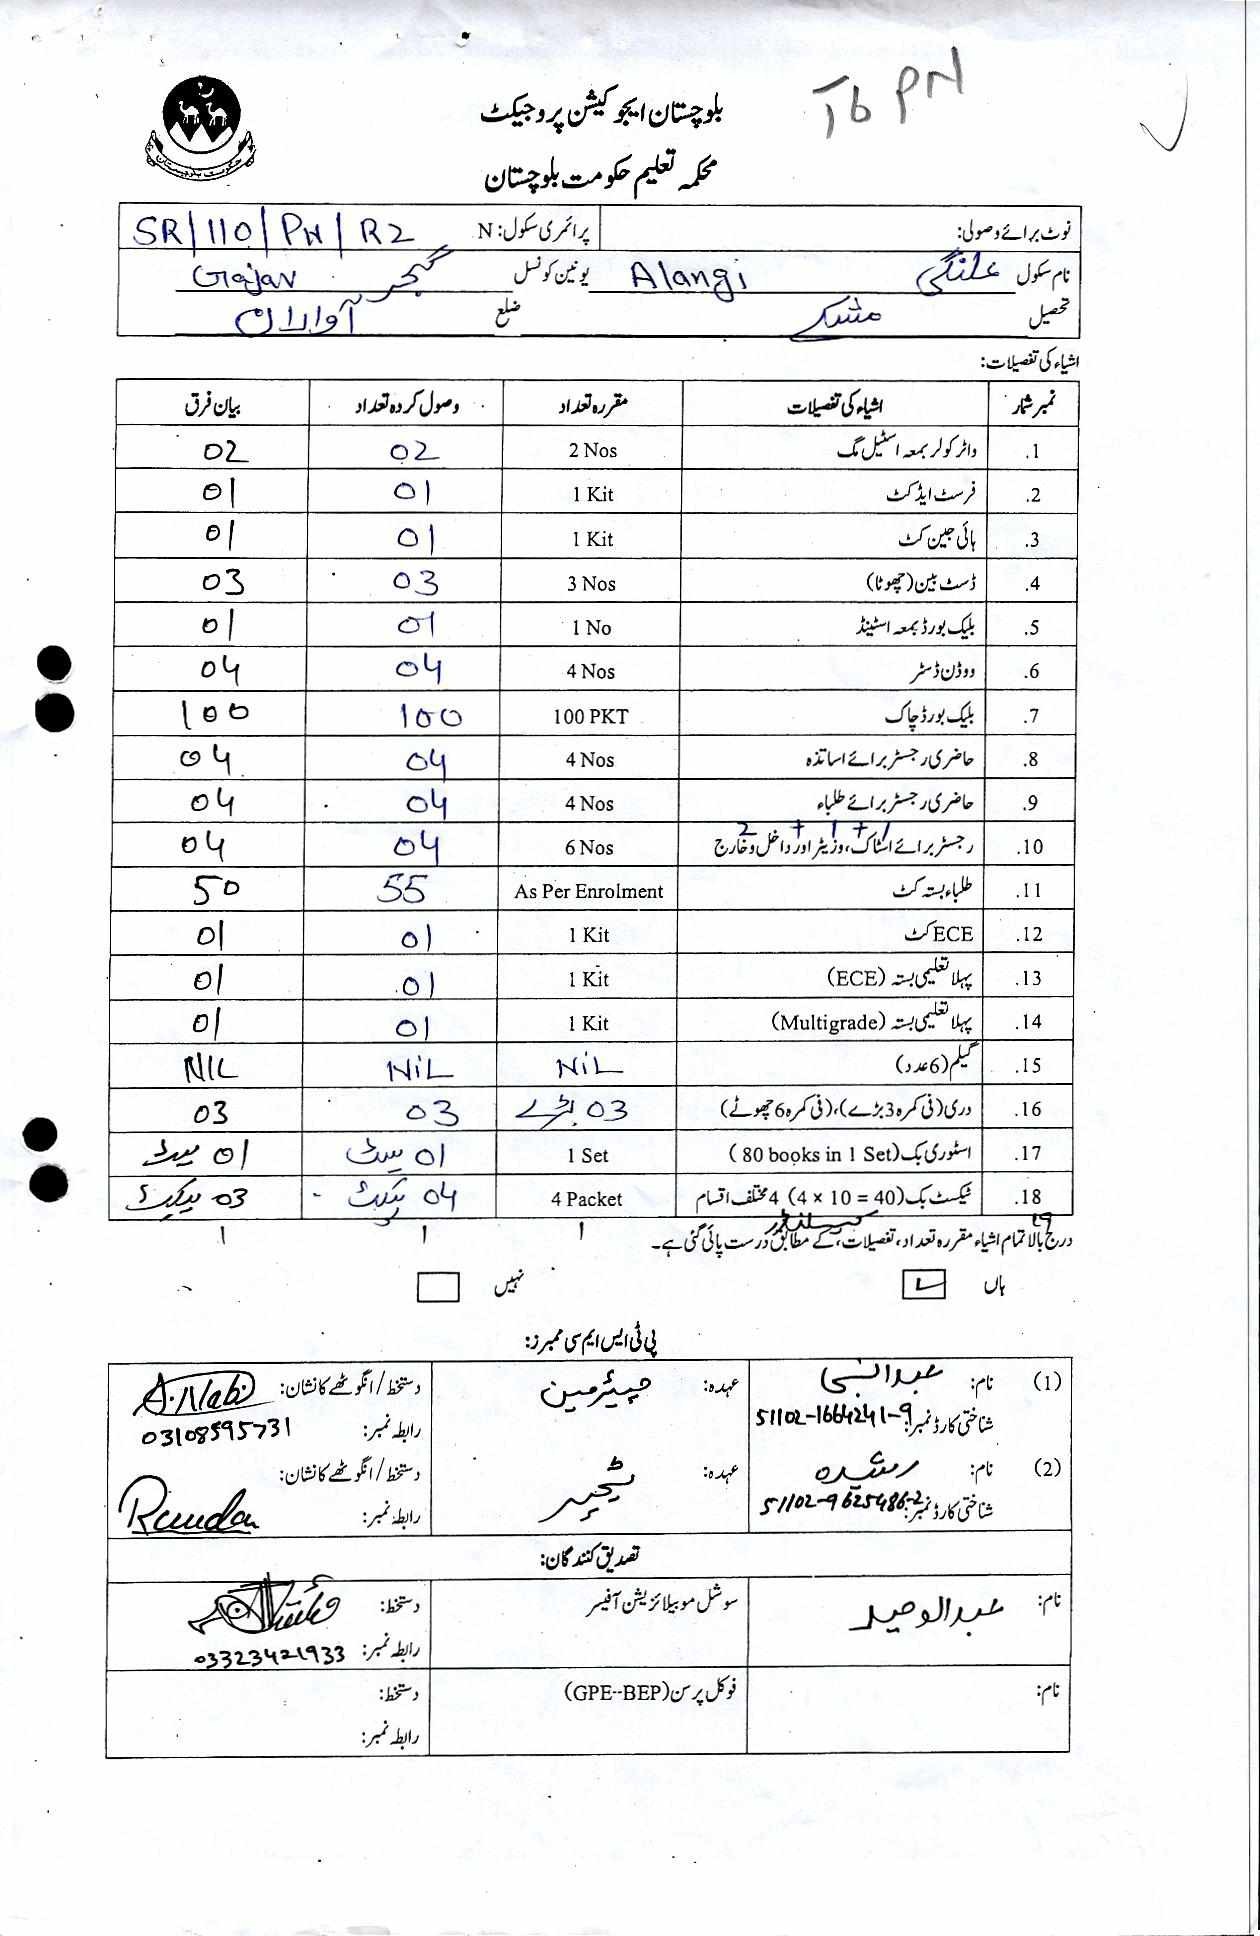 Tb PN
بلوچستان ایجوکیشن پروجیکٹ
محکمہ تعلیم حکومت بلوچستان
نوٹ برائے وصولی: پرائمری سکول: N SR/110/PN/R2
نام سکول علنگی Alangi یونین کونسل گجر Gajar
تحصیل مشکے ضلع آواران
اشیاء کی تفصیلات:
نمبر شمار اشیاء کی تفصیلات مقررہ تعداد وصول کردہ تعداد بیان فرق
1. واٹر کولر بمعہ اسٹیل مگ 2 Nos 02 02
2. فرسٹ ایڈ کٹ 1 Kit 01 01
3. ہائی جین کٹ 1 Kit 01 01
4. ڈسٹ بین (چھوٹا) 3 Nos 03 03
5. بلیک بورڈ بمعہ اسٹینڈ 1 No 01 01
6. ووڈن ڈسٹر 4 Nos 04 04
7. بلیک بورڈ چاک 100 PKT 100 100
8. حاضری رجسٹر برائے اساتذہ 4 Nos 04 04
9. حاضری رجسٹر برائے طلباء 4 Nos 04 04
1 + 1 + 2
10. رجسٹر برائے اسٹاک، وزیٹر اور داخل و خارج 6 Nos 04 04
11. طلباء بستہ کٹ As Per Enrolment 55 50
12. ECE کٹ 1 Kit 01 01
13. پہلا تعلیمی بستہ (ECE) 1 Kit 01 01
14. پہلا تعلیمی بستہ (Multigrade) 1 Kit 01 01
15. گلیم (6 عدد) NiL NiL NIL
16. دری (فی کمرہ 3 بڑے)، (فی کمرہ 6 چھوٹے) 03 بڑے 03 03
17. اسٹوری بک (80 books in 1 Set) 1 Set 01 سیٹ 01 سیٹ
18. ٹیکسٹ بک (4 × 10 = 40) 4 مختلف اقسام 4 Packet 04 پیکٹ 03 پیکیٹ
19 کیلنڈر 1 1 1
درج بالا تمام اشیاء مقررہ تعداد، تفصیلات کے مطابق درست پائی گئی ہے۔
ہاں نہیں
پی ٹی ایس ایم سی ممبرز:
(1) نام: عبدالنبی عہدہ: چیئرمین دستخط / انگوٹھے کا نشان: A.Nabi
شناختی کارڈ نمبر: 51102-1664241-9 رابطہ نمبر: 03108595731
(2) نام: رشیدہ عہدہ: ٹیچر دستخط / انگوٹھے کا نشان:
شناختی کارڈ نمبر: 51102-9625486-2 رابطہ نمبر:
تصدیق کنندگان:
نام: عبدالوحید سوشل موبیلائزیشن آفیسر دستخط:
رابطہ نمبر: 03323421933
نام: فوکل پرسن (GPE--BEP) دستخط:
رابطہ نمبر: